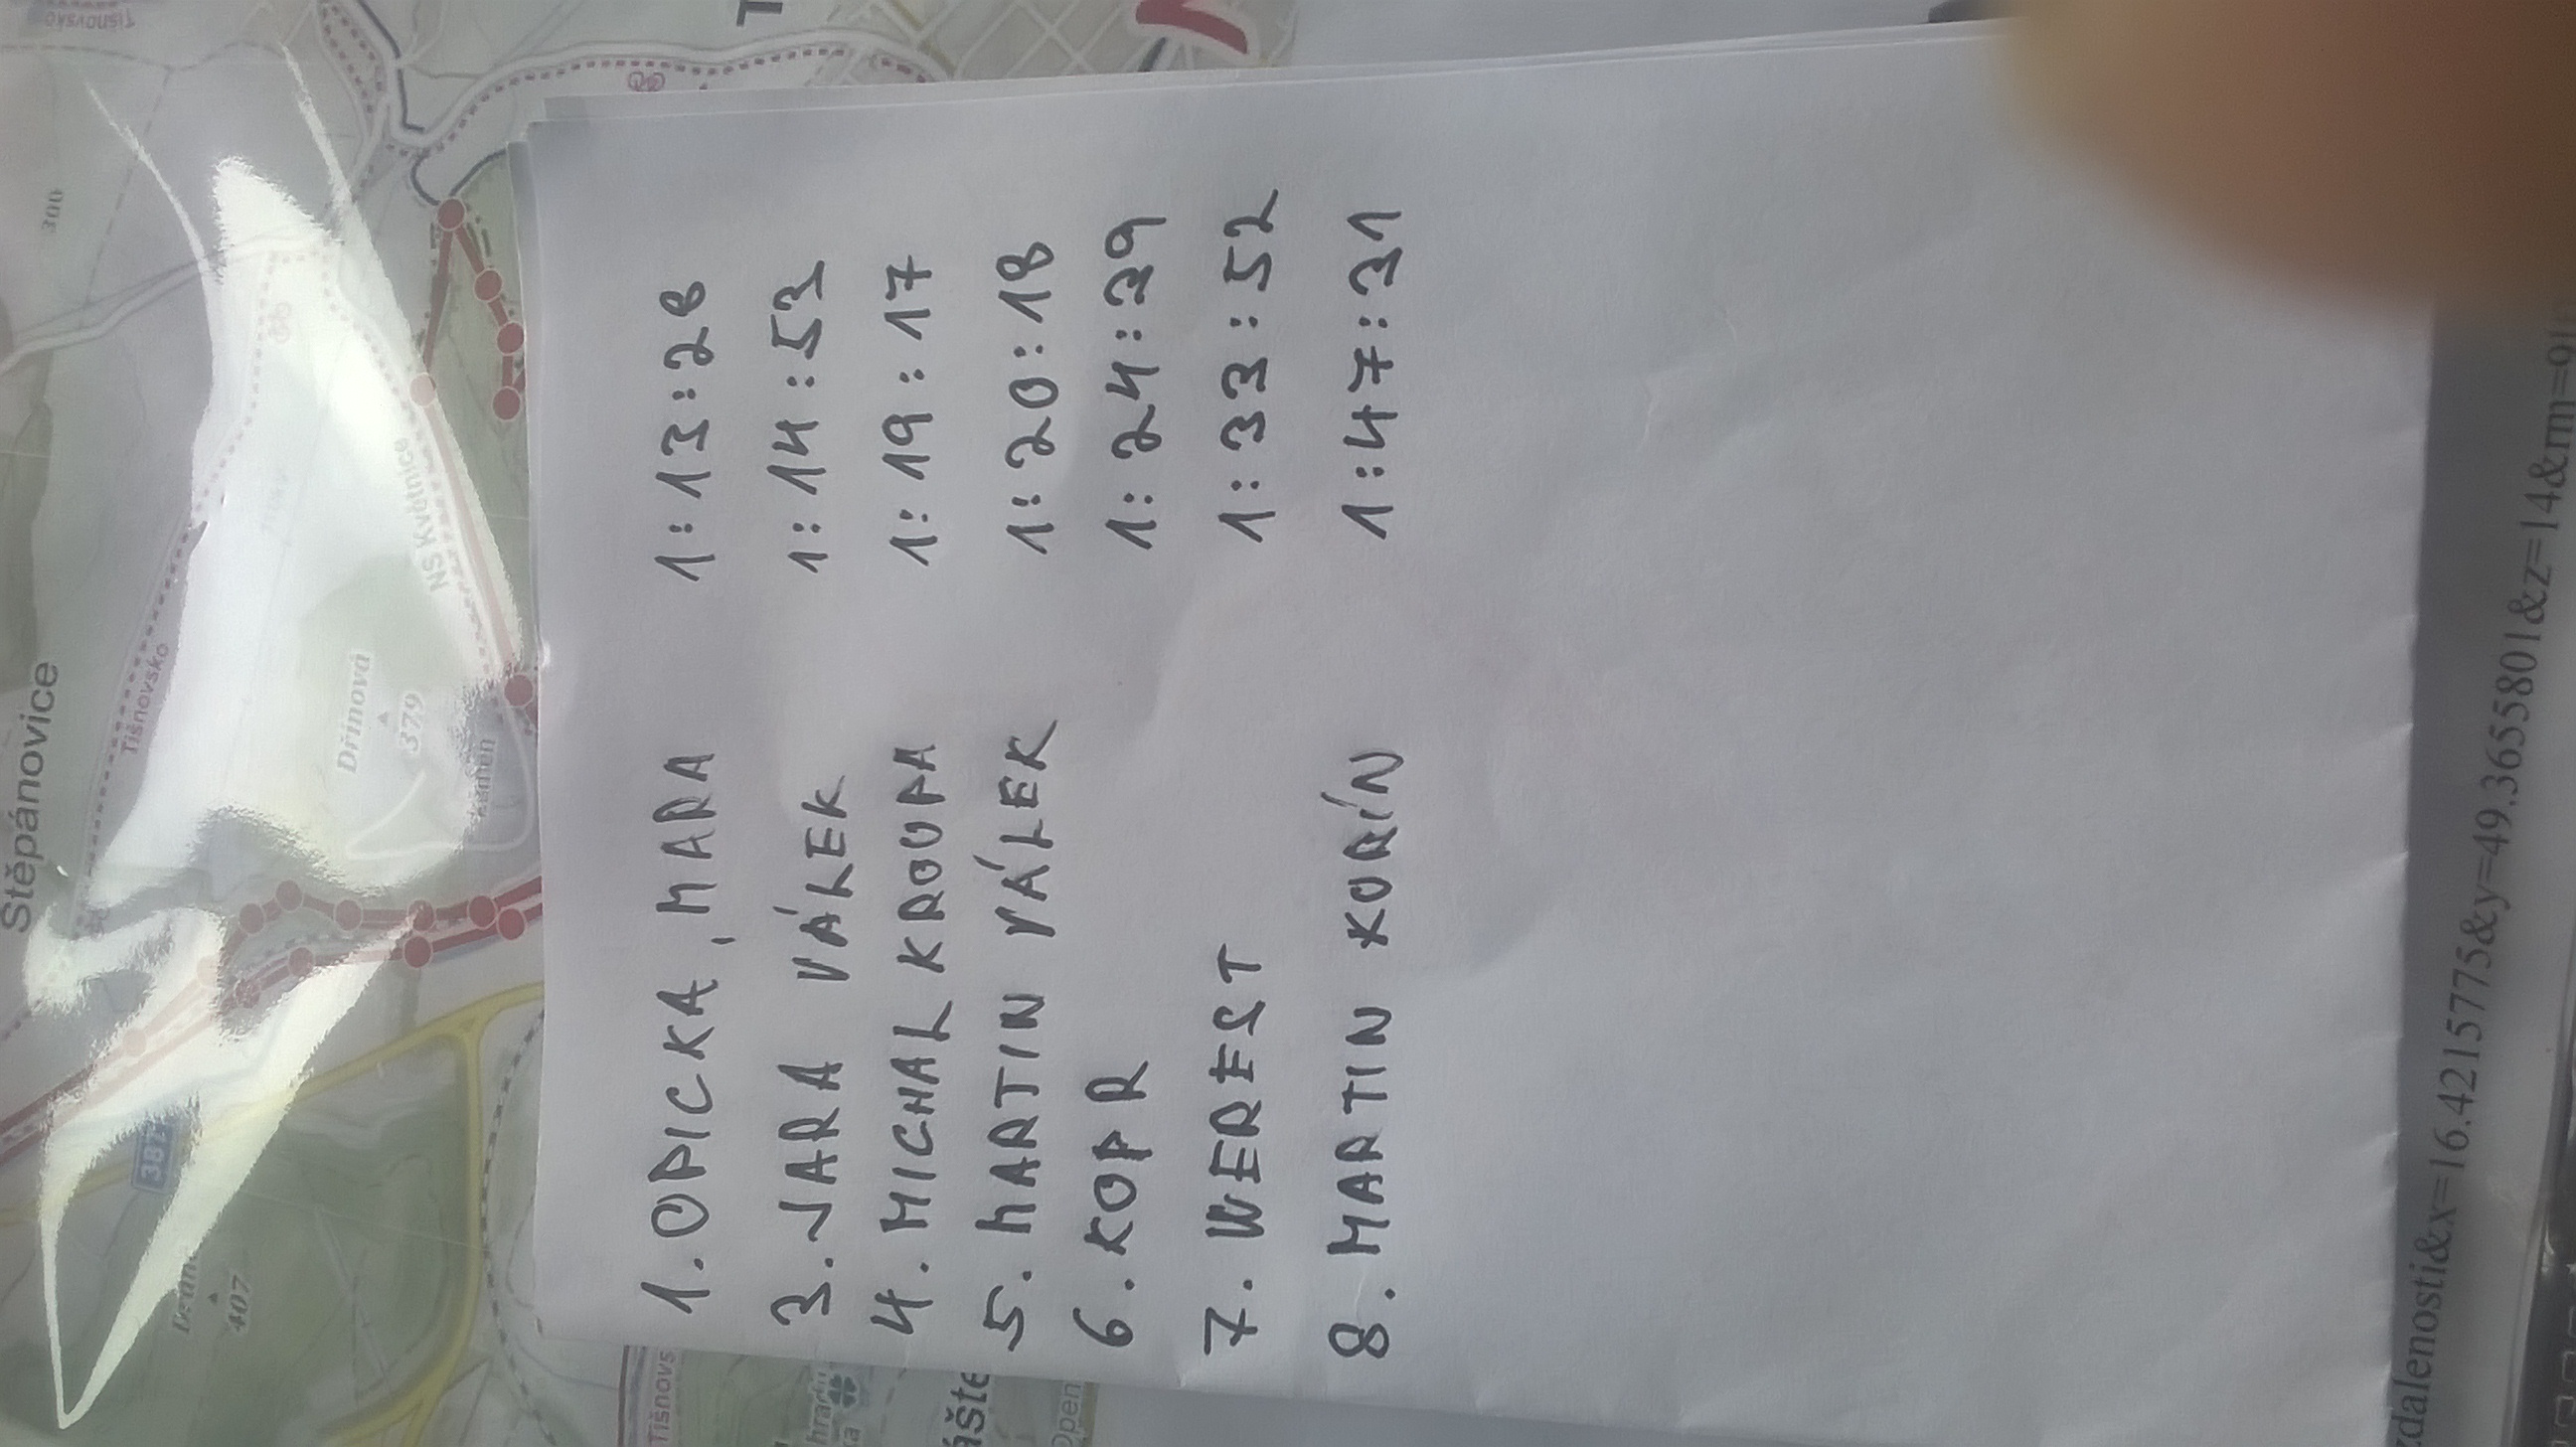 1. OPICKA, MARA 1:13:28
3. JARA VÁLEK 1:14:53
4. MICHAL KROUPA 1:19:17
5. MARTIN VÁLEK 1:20:18
6. KOPR 1:24:39
7. WEREST 1:33:52
8. MARTIN KORÍN 1:47:31
Štěpánovice
Tišnovsko
Tišnovsko
300
NS Květnice
Dřínová
379
kámen
407
Tišnovs
Open
zdalenosti&x=16.4215775&y=49.3655801&z=14&m=91